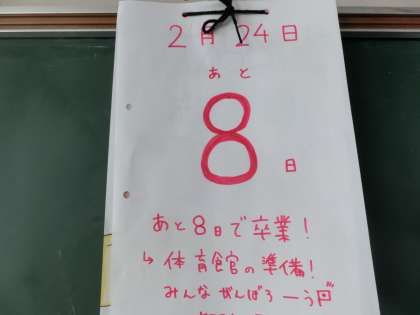 2月24日
あと
8
日
あと8日で卒業!
↳体育館の準備!
みんながんばろーう